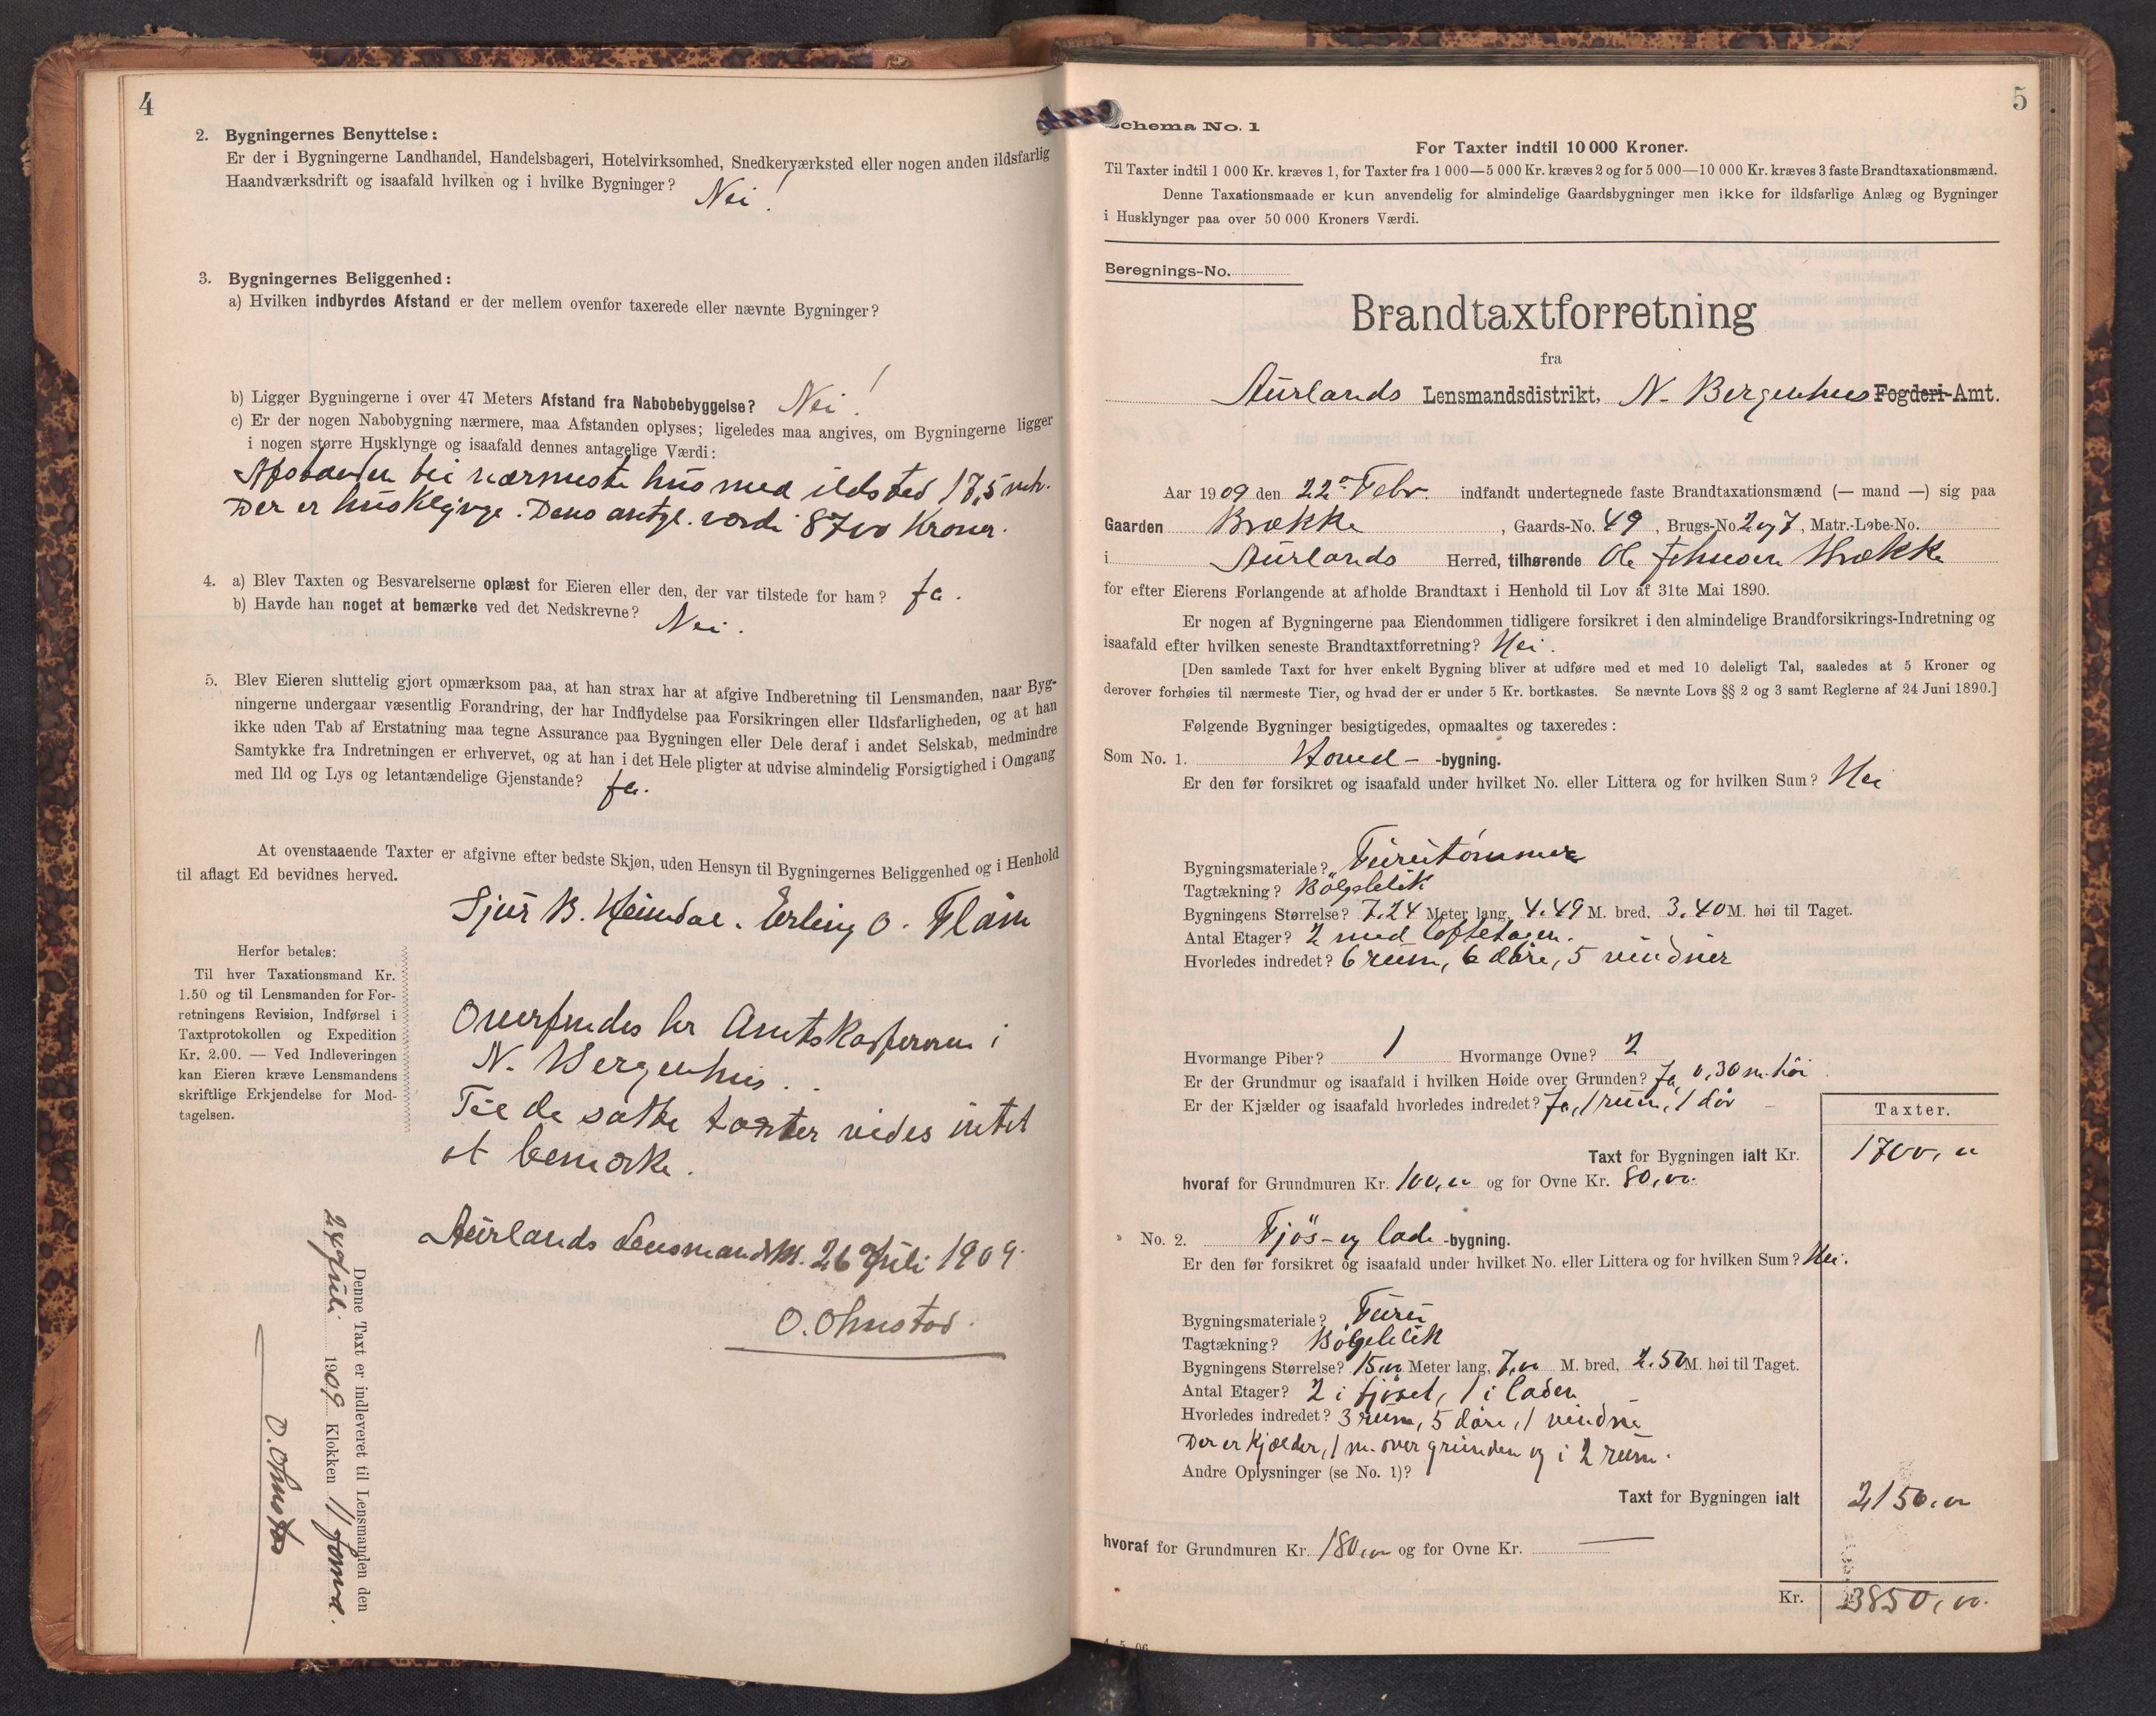 4
2. Bygningernes Benyttelse:
Er der i Bygningerne Landhandel, Handelsbageri, Hotelvirksomhed, Snedkerværksted eller nogen anden ildsfarlig
Haandværksdrift og isaafald hvilken og i hvilke Bygninger? Nei!
3. Bygningernes Beliggenhed:
a) Hvilken indbyrdes Afstand er der mellem ovenfor taxerede eller nævnte Bygninger?
b) Ligger Bygningerne i over 47 Meters Afstand fra Nabobebyggelse? Nei!
c) Er der nogen Nabobygning nærmere, maa Afstanden oplyses; ligeledes maa angives, om Bygningerne ligger
i nogen større Husklynge og isaafald dennes antagelige Værdi:
Afstanden til nærmeste hus med ildsted 17,5 mtr.
Der er husklynge. Dens antgl. værdi 8700 Kroner.
4. a) Blev Taxten og Besvarelserne oplæst for Eieren eller den, der var tilstede for ham? Ja.
b) Havde han noget at bemærke ved det Nedskrevne? Nei.
5. Blev Eieren sluttelig gjort opmærksom paa, at han strax har at afgive Indberetning til Lensmanden, naar Byg-
ningerne undergaar væsentlig Forandring, der har Indflydelse paa Forsikringen eller Ildsfarligheden, og at han
ikke uden Tab af Erstatning maa tegne Assurance paa Bygningen eller Dele deraf i andet Selskab, medmindre
Samtykke fra Indretningen er erhvervet, og at han i det Hele pligter at udvise almindelig Forsigtighed i Omgang
med Ild og Lys og letantændelige Gjenstande? Ja.
At ovenstaaende Taxter er afgivne efter bedste Skjøn, uden Hensyn til Bygningernes Beliggenhed og i Henhold
til aflagt Ed bevidnes herved.
Sjur B. Heimdal. Erling O. Flåm
Herfor betales:
Til hver Taxationsmand Kr.
1.50 og til Lensmanden for For-
retningens Revision, Indførsel i
Taxtprotokollen og Expedition
Kr. 2.00. — Ved Indleveringen
kan Eieren kræve Lensmandens
skriftlige Erkjendelse for Mod-
tagelsen.
Oversendes hr Amtskasereren i
N. Bergenhus.
Til de satte taxter vides intet
at bemærke.
Aurlands Lensmandsk. 26 Juli 1909.
O. Ohnstad.
Denne Taxt er indleveret til Lensmanden den
24 Juli 1909 Klokken 11 formd.
O. Ohnstad
5
Schema No. 1
For Taxter indtil 10 000 Kroner.
Til Taxter indtil 1 000 Kr. kræves 1, for Taxter fra 1 000—5 000 Kr. kræves 2 og for 5 000—10 000 Kr. kræves 3 faste Brandtaxationsmænd.
Denne Taxationsmaade er kun anvendelig for almindelige Gaardsbygninger men ikke for ildsfarlige Anlæg og Bygninger
i Husklynger paa over 50 000 Kroners Værdi.
Beregnings-No.
Brandtaxtforretning
fra
Aurlands Lensmandsdistrikt, N. Bergenhus Fogderi-Amt.
Aar 1909 den 22 Febr. indfandt undertegnede faste Brandtaxationsmænd (— mand —) sig paa
Gaarden Brække, Gaards-No. 49, Brugs-No 2 og 7, Matr.-Løbe-No.
i Aurlands Herred, tilhørende Ole Johnsen Brække
for efter Eierens Forlangende at afholde Brandtaxt i Henhold til Lov af 31te Mai 1890.
Er nogen af Bygningerne paa Eiendommen tidligere forsikret i den almindelige Brandforsikrings-Indretning og
isaafald efter hvilken seneste Brandtaxtforretning? Nei.
[Den samlede Taxt for hver enkelt Bygning bliver at udføre med et med 10 deleligt Tal, saaledes at 5 Kroner og
derover forhøies til nærmeste Tier, og hvad der er under 5 Kr. bortkastes. Se nævnte Lovs §§ 2 og 3 samt Reglerne af 24 Juni 1890.]
Følgende Bygninger besigtigedes, opmaaltes og taxeredes:
Som No. 1. Hoved- -bygning.
Er den før forsikret og isaafald under hvilket No. eller Littera og for hvilken Sum? Nei
Bygningsmateriale? Furutømmer
Tagtækning? Bølgeblik
Bygningens Størrelse? 7.24 Meter lang, 4.49 M. bred, 3.40 M. høi til Taget.
Antal Etager? 2 med loftetagen.
Hvorledes indredet? 6 rum, 6 døre, 5 vinduer
Hvormange Piber? 1 Hvormange Ovne? 2
Er der Grundmur og isaafald i hvilken Høide over Grunden? Ja, 0,30 m. høi
Er der Kjælder og isaafald hvorledes indredet? Ja, 1 rum, 1 dør
Taxter.
Taxt for Bygningen ialt Kr. 1700,00
hvoraf for Grundmuren Kr. 100,00 og for Ovne Kr. 80,00.
No. 2. Fjøs- og lade -bygning.
Er den før forsikret og isaafald under hvilket No. eller Littera og for hvilken Sum? Nei.
Bygningsmateriale? Furu
Tagtækning? Bølgeblik
Bygningens Størrelse? 15,00 Meter lang, 7,00 M. bred, 2.50 M. høi til Taget.
Antal Etager? 2 i fjøset, 1 i laden
Hvorledes indredet? 3 rum, 5 døre, 1 vindue
Der er kjælder, 1 m. over grunden og i 2 rum.
Andre Oplysninger (se No. 1)?
Taxt for Bygningen ialt 2150,00
hvoraf for Grundmuren Kr. 180,00 og for Ovne Kr. —
Kr. 3850,00.
4. 5. 06